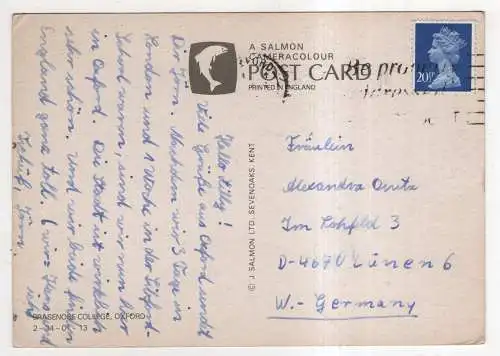 A SALMON
CAMERACOLOUR
POST CARD
PRINTED IN ENGLAND
20P
Be
Hello Lilly!
Viele Grüße aus Oxford sendet
Dir Jörn. Nachdem wir 3 Tage in
London und 1 Woche in der
waren, sind wir nun hier
in Oxford. Die Stadt ist wirklich
sehr schön. Und wir beide finden
England ganz toll. (wir =
ich)
Tschüß, Jörn.
© J. SALMON LTD., SEVENOAKS, KENT
Fräulein
Alexandra
Im Lohfeld 3
D-4670 Lünen 6
W.-Germany
BRASENOSE COLLEGE, OXFORD
2-34-01-13